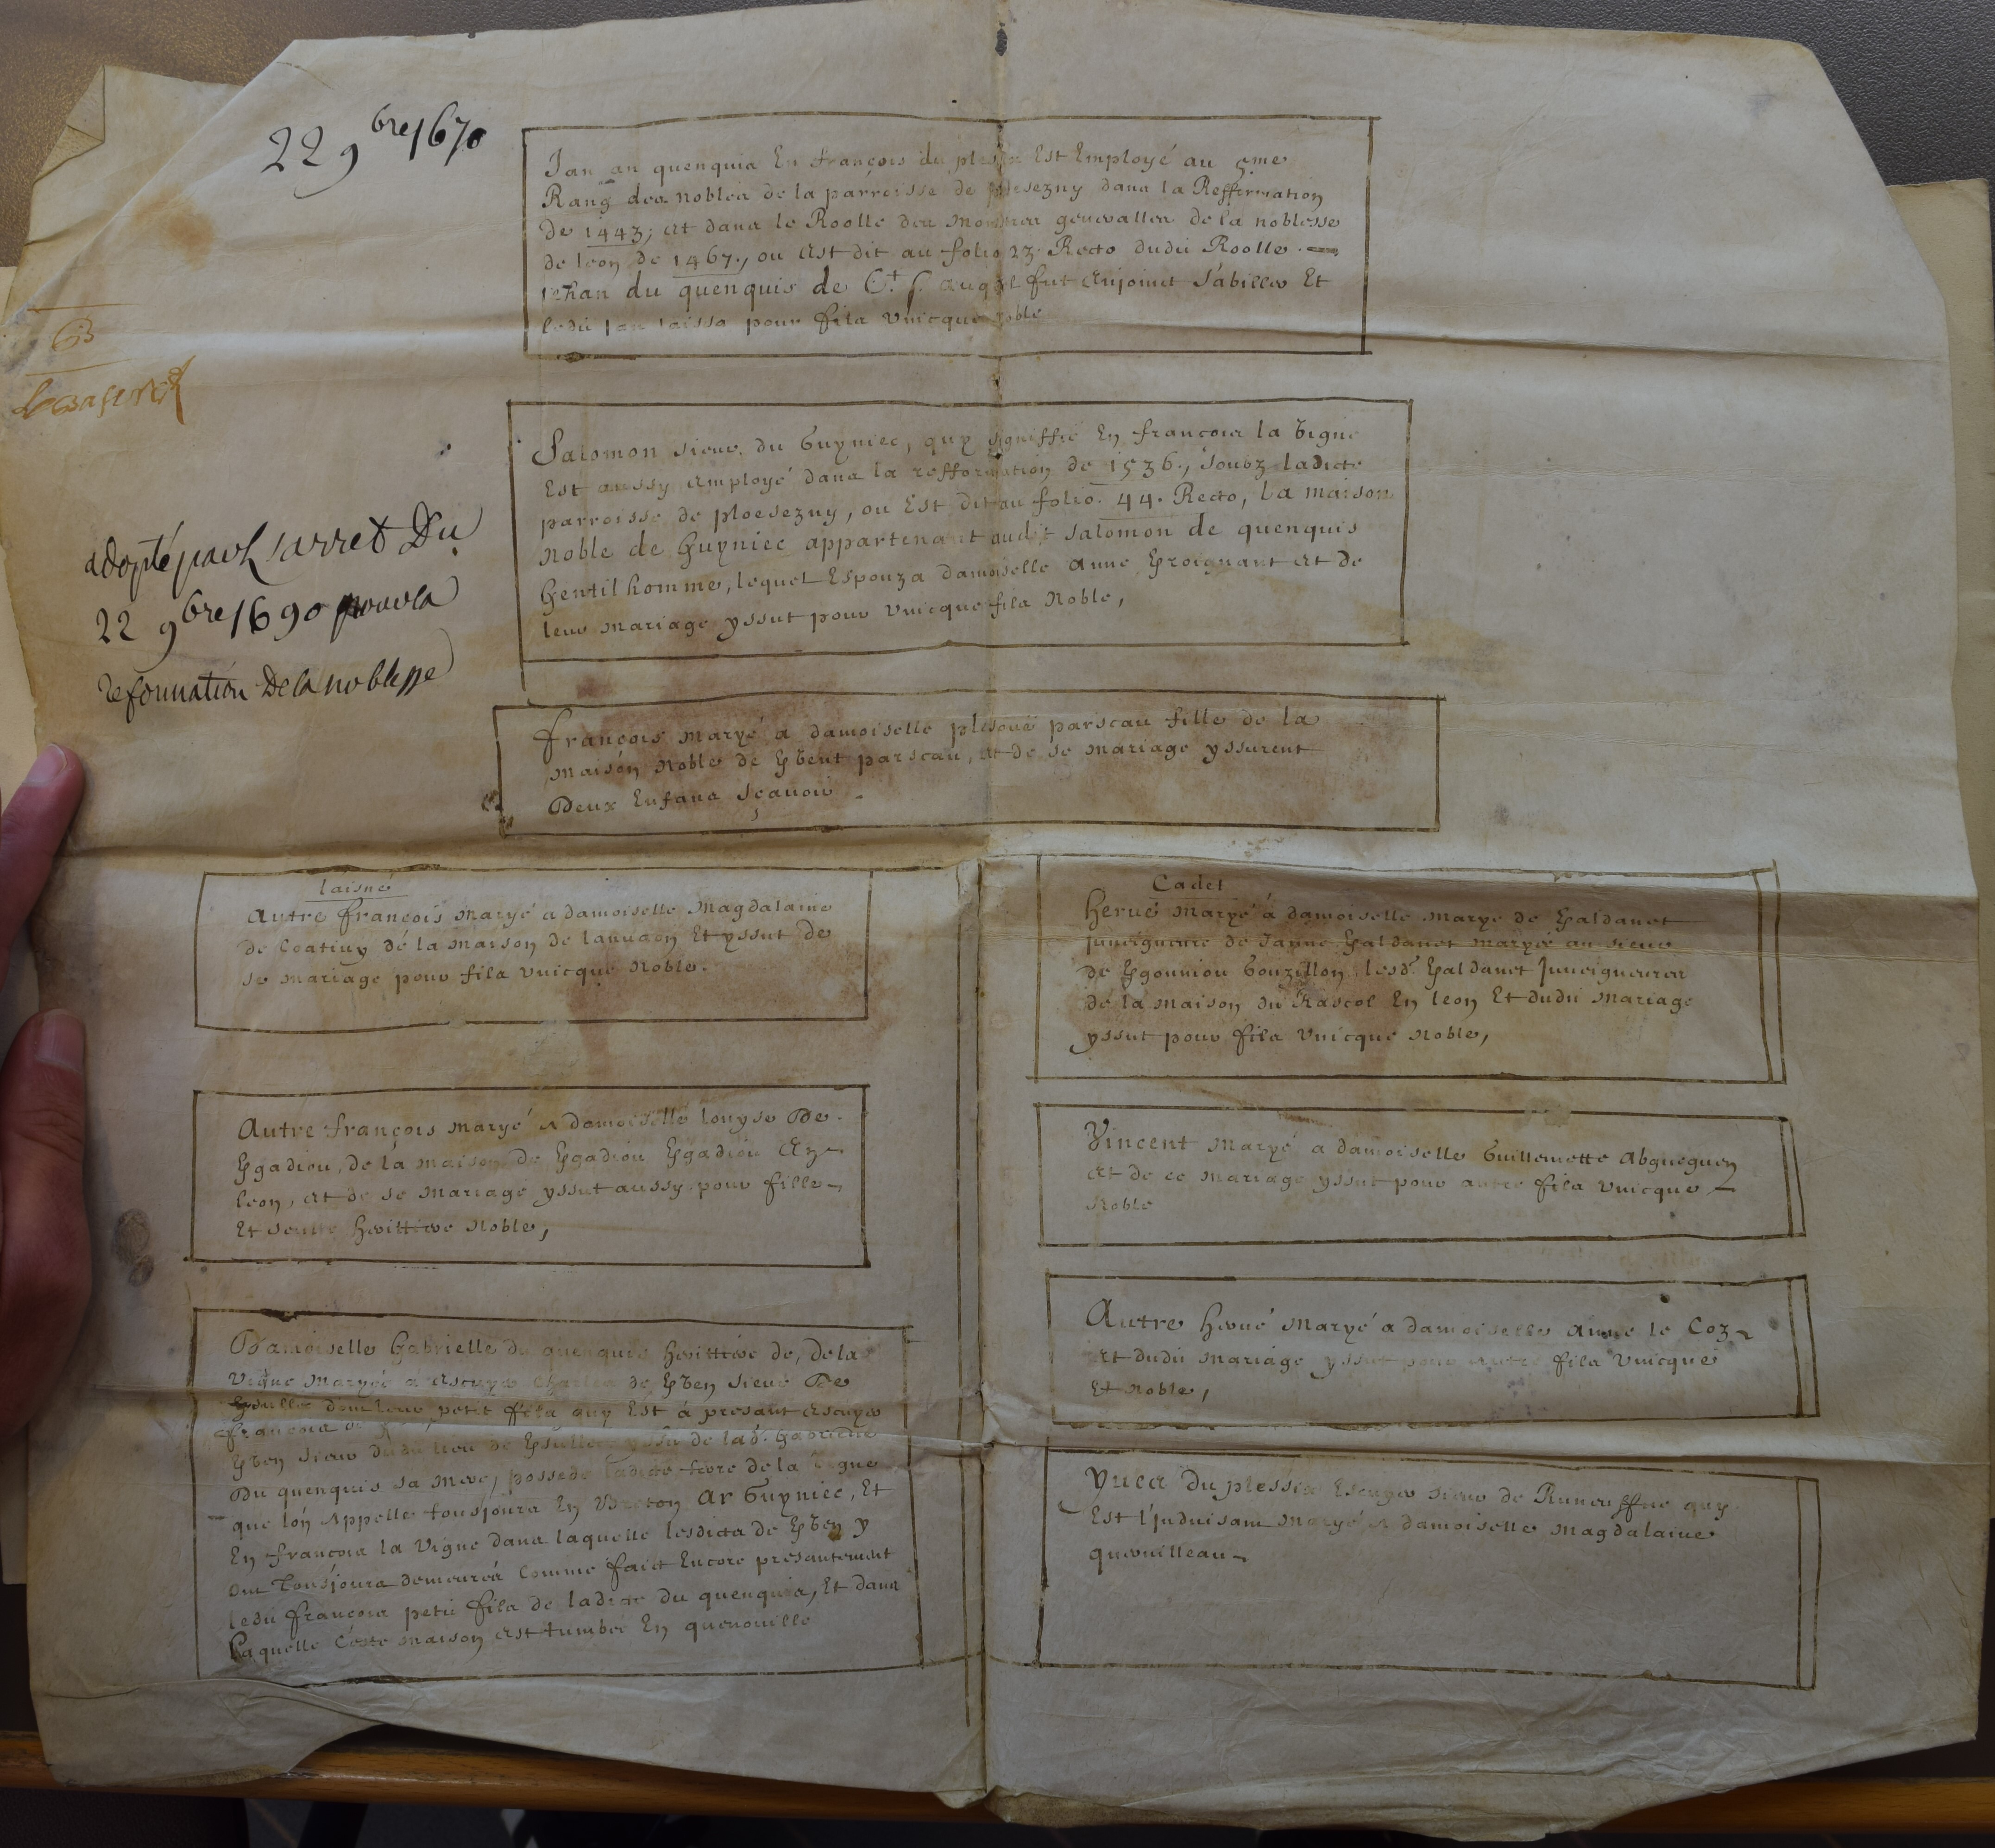 22 9bre 1670
Jan an quenquia En françois du plessix Est Employé au 5me
Rang des Nobles de la parroisse de ploesezny dans la Refformation
De 1443; et dans le Roolle des Monstres generalles de la noblesse
de leon de 1467., ou est dit au folio 23. Recto dudit Roolle.
Jehan du quenquis de fut enjoinct s'abiller Et
ledit Jan laissa pour fils Vnicque Noble
63
Salomon sieur du Guyniec, quy signiffie En francois la Vigne
Est aussy employé dans la refformation de 1536., soubz ladicte
parroisse de ploesezny, ou Est dit au folio. 44. Recto, La maison
Noble de Guyniec appartenant audit Salomon de quenquis
Gentilhomme, lequel Espouza damoiselle Anne Kroignant et de
leur Mariage yssut pour Vnicque fils Noble,
adopté par l'arret Du
22 9bre 1690 pour la
reformation De la noblesse
françois Maryé a damoiselle plesoue parscau fille de la
Maison Noble de parscau, et de se Mariage yssurent
Deux Enfans sçauoir
laisné
Autre françois Maryé a damoiselle Magdalaine
de Coatiuy de la Maison de Et yssut de
se Mariage pour fils Vnicque Noble.
Cadet
Herué Maryé à damoiselle Marye de Kaldanet
juueigneure de Janne Kaldanet Maryée au sieur
de Kgounion Gouzillon. lesd. Kaldanet Juueigneures
de la Maison du Rascol En leon Et dudit Mariage
yssut pour fils Vnicque Noble,
Autre françois Maryé a damoiselle louyse De
Kgadiou, de la Maison de Kgadiou Kgadiou En
leon, et de se Mariage yssut aussy pour fille
Et seulle herittiere Noble,
Vincent Maryé a damoiselle Guillemette Abgueguen
et de ce Mariage yssut pour autre fils Vnicque
Noble
Autre Herué Maryé a damoiselle Anne le Coz
et dudit Mariage yssut pour autre fils Vnicque
Et Noble,
Damoiselle Gabrielle du quenquis herittiere de, de la
Vigne Maryée a escuyer Charles de Kven sieur De
Ksulle dont leur petit fils quy Est à presant escuyer
françois de
Kven sieur dudit lieu de yssu de lad. Gabrielle
Du quenquis sa Mere, possede ladicte terre de la Vigne
que lon Appelle tousjours En Breton Ar Guyniec, Et
En francois la Vigne dans laquelle lesdicts de Kven y
ont Tousjours demeurés comme faict Encore presantement
ledit francois petit fils de ladicte du quenquis, Et dans
Laquelle Ceste maison est tumbée En quenouille
Yues Du plessix Escuyer sieur de quy
Est l'Induisant Maryé a damoiselle Magdalaine